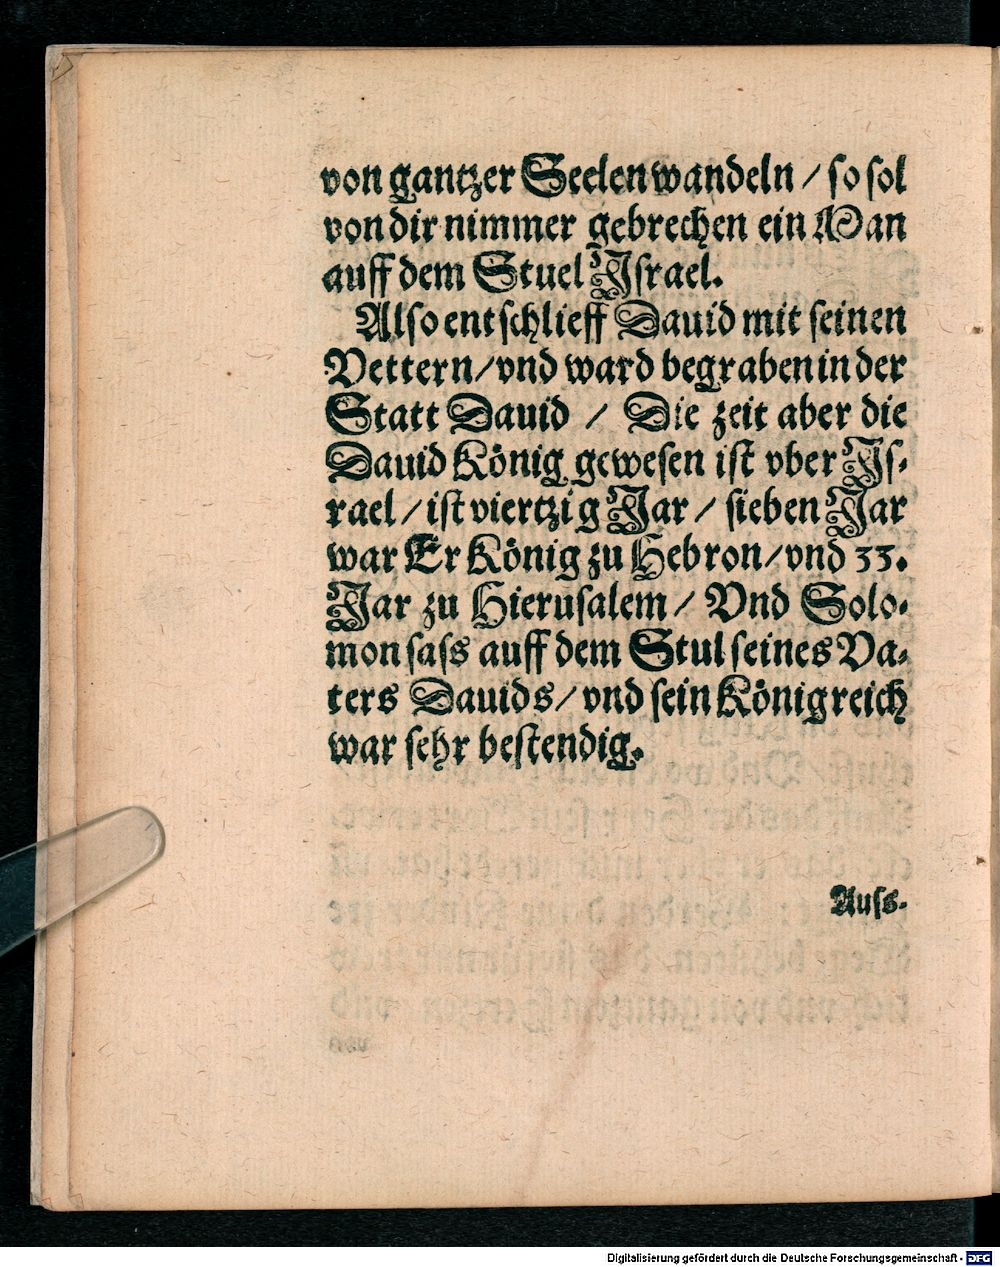 von gantzer Seelen wandeln / so sol
von dir nimmer gebrechen ein Man
auff dem Stuel Jsrael.
Also entschlieff Dauid mit seinen
Vettern / vnd ward begraben in der
Statt Dauid / Die zeit aber die
Dauid König gewesen ist vber Js-
rael / ist viertzig Jar / sieben Jar
war Er König zu Hebron / vnd 33.
Jar zu Hierusalem / Vnd Solo-
mon sass auff dem Stul seines Va-
ters Dauids / vnd sein Königreich
war sehr bestendig.
Auss-
Digitalisierung gefördert durch die Deutsche Forschungsgemeinschaft - DFG